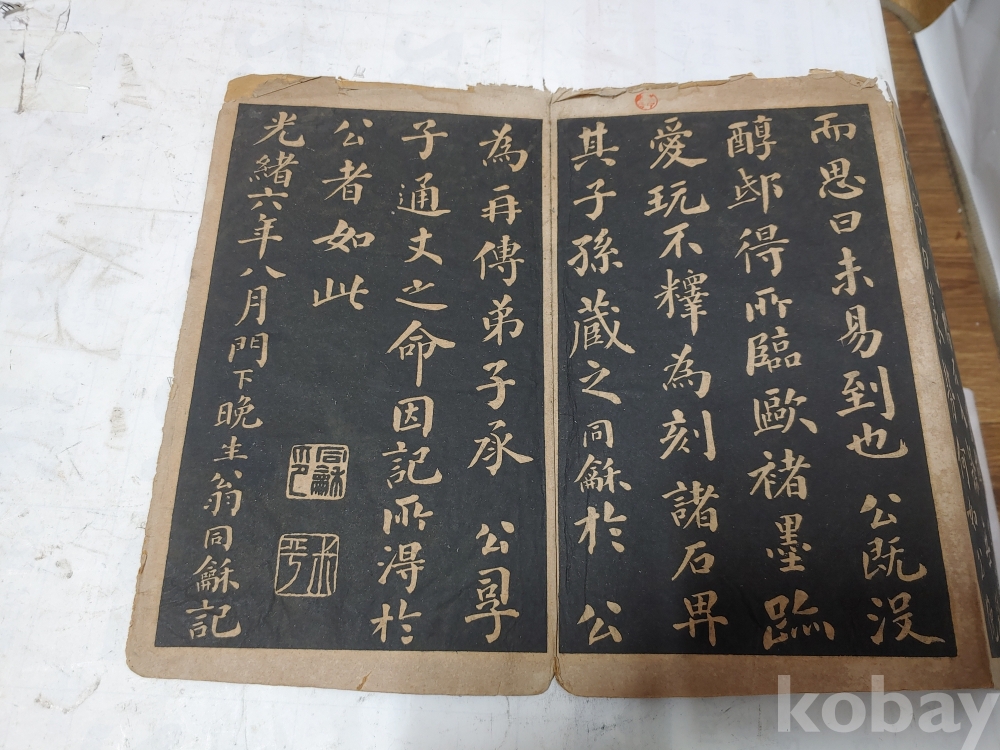 而思曰未易到也 公既沒
醇邸得所臨歐褚墨跡
愛玩不釋為刻諸石畀
其子孫藏之同龢於 公
為再傳弟子承 公孠
子通丈之命因記所得於
公者如此
光緒六年八月門下晚生翁同龢記
同龢印
叔平
kobay